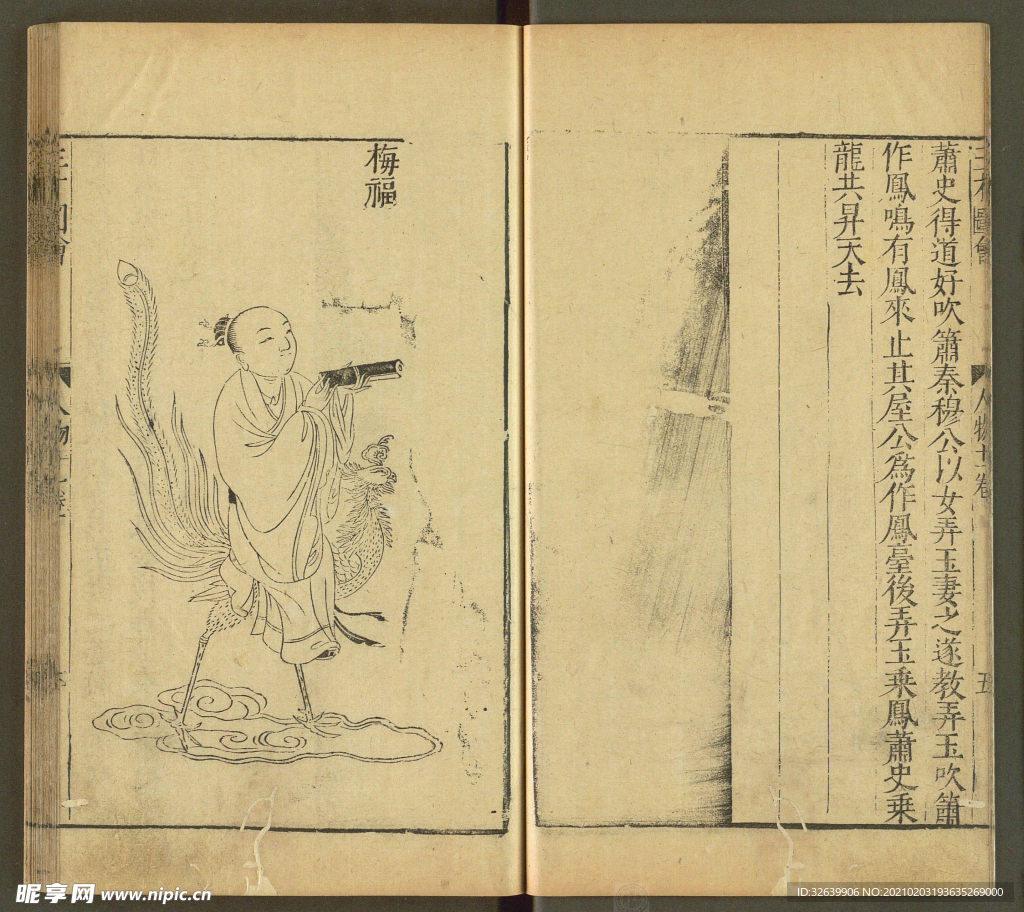 三才圖會
人物十一卷
五
蕭史得道好吹簫秦穆公以女弄玉妻之遂教弄玉吹簫
作鳳鳴有鳳來止其屋公爲作鳳臺後弄玉乘鳳蕭史乘
龍共昇天去
梅福
昵享网 www.nipic.cn
ID:32639906 NO:20210203193635269000